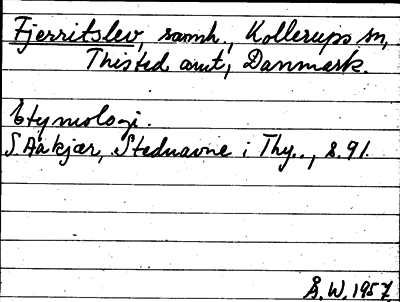 Fjerritslev, samh., Kollerups sn,
Thisted amt, Danmark.
Etymologi.
S. Aakjær, Stednavne i Thy.., s. 91.
Å. W. 1957